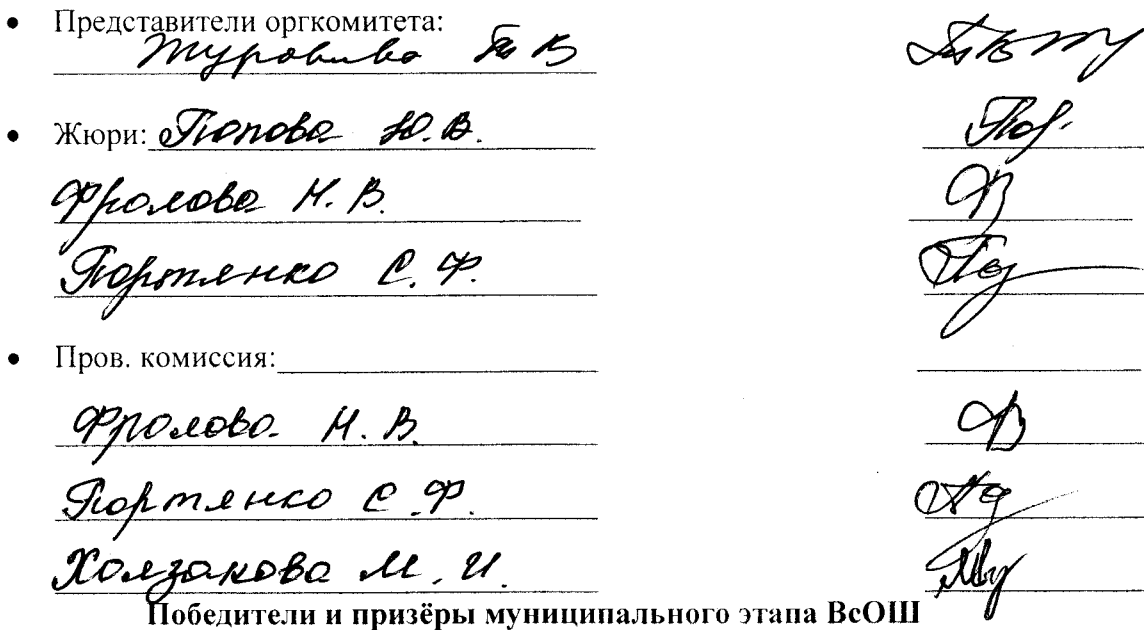 • Представители оргкомитета:
Журавлева Т В
• Жюри: Попова Ю. В.
Фролова Н. В.
Портянко С. Ф.
• Пров. комиссия:
Фролова Н. В.
Портянко С. Ф.
Холзакова М. И.
Победители и призёры муниципального этапа ВсОШ